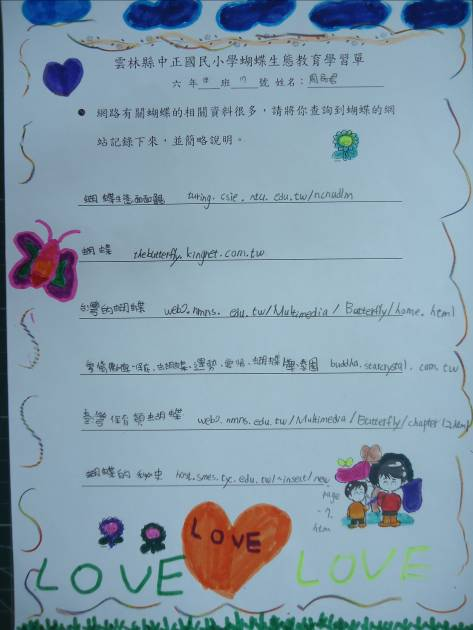 雲林縣中正國民小學蝴蝶生態教育學習單
六 年 班 17 號 姓名：
● 網路有關蝴蝶的相關資料很多，請將你查詢到蝴蝶的網
站記錄下來，並簡略說明。
蝴蝶生態面面觀 turing.csie.ntu.edu.tw/ncnudlm
蝴蝶 thebutterfly.kingnet.com.tw
台灣的蝴蝶 web2.nmns.edu.tw/Multimedia/Butterfly/home.html
蝴蝶 運勢 蝴蝶 buddha.starcrystal.com.tw
臺灣保育類蝴蝶 web2.nmns.edu.tw/Multimedia/Butterfly/chapter12.html
蝴蝶的秘史 host.smes.tyc.edu.tw/~insect/new
page
-2.
htm
LOVE
LOVE
LOVE